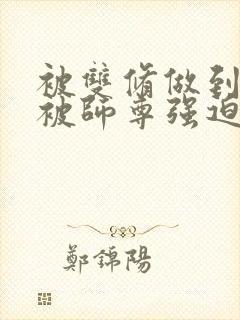 被雙脩做到
被師尊强迫
鄭錦陽